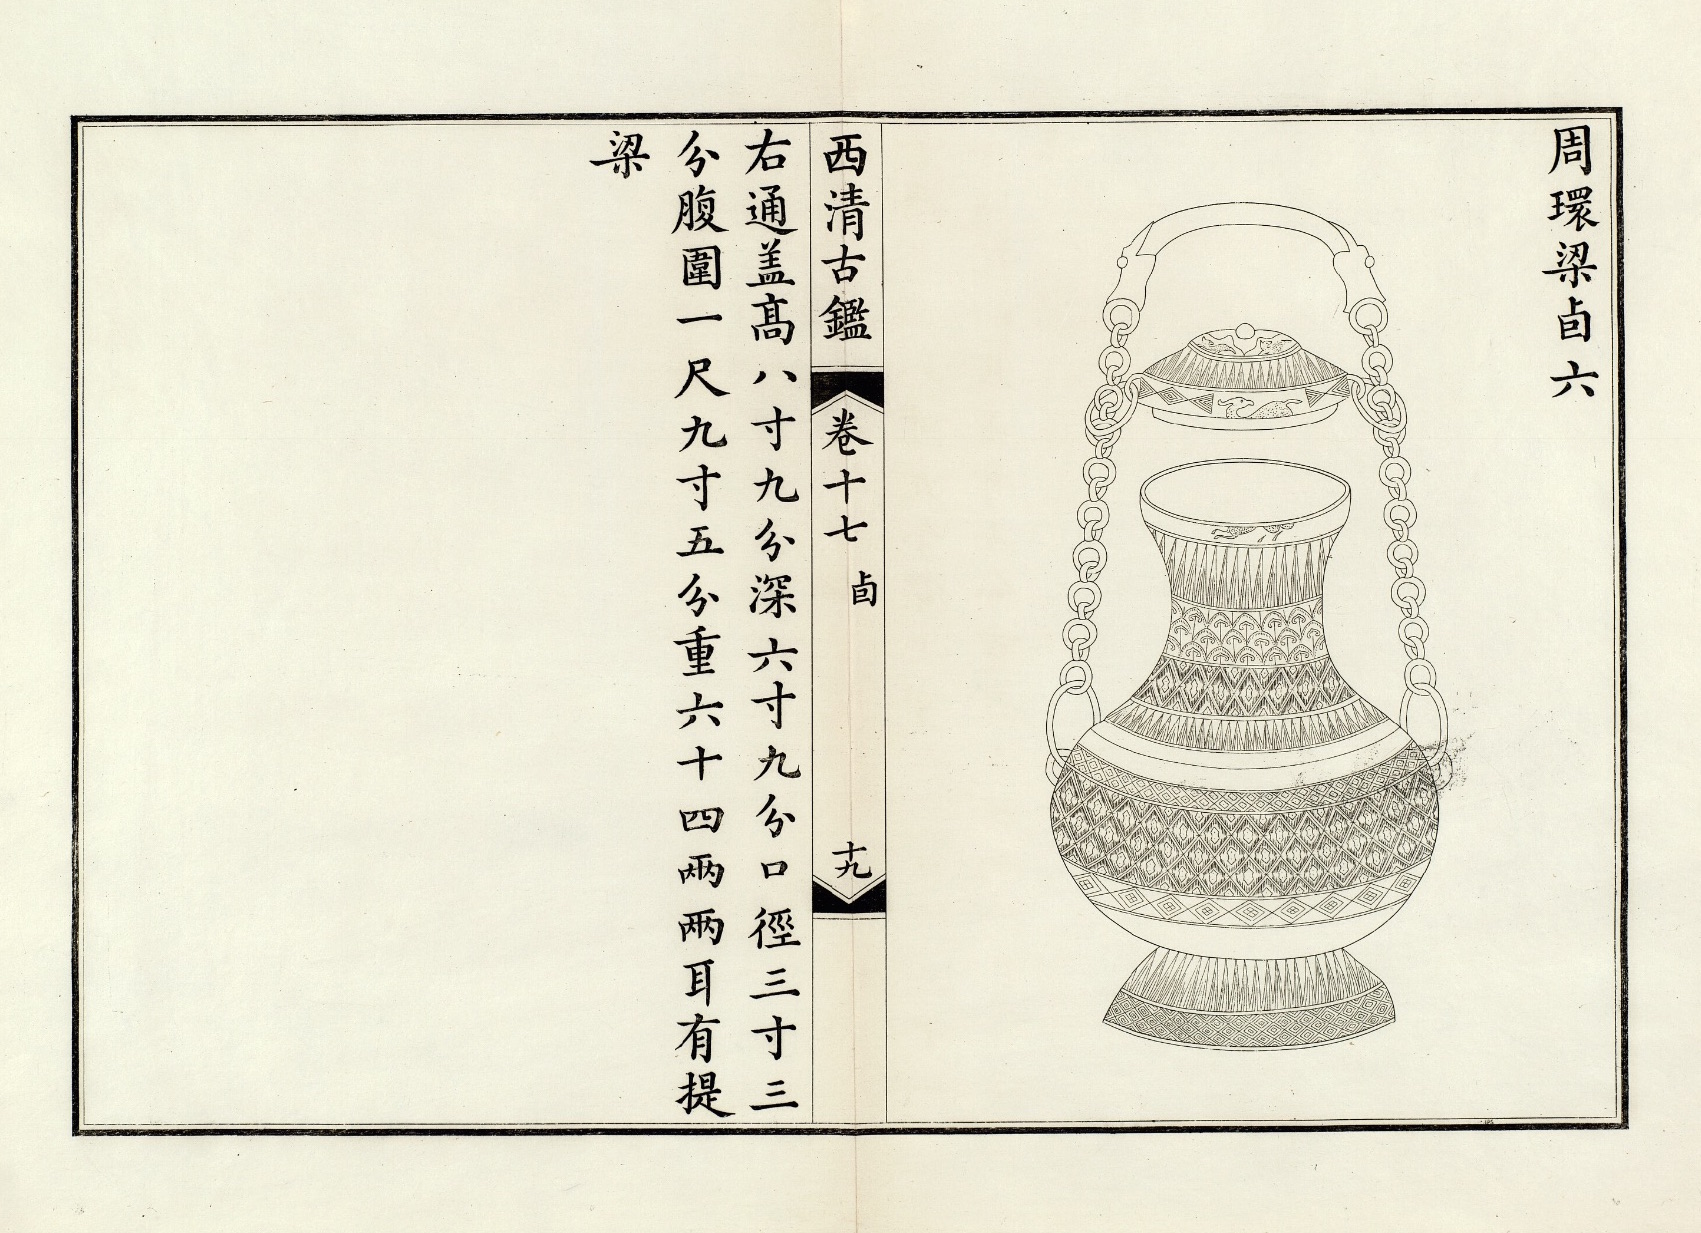 周環梁卣六
西清古鑑
卷十七
卣
十九
右通盖髙八寸九分深六寸九分口徑三寸三
分腹圍一尺九寸五分重六十四兩兩耳有提
梁